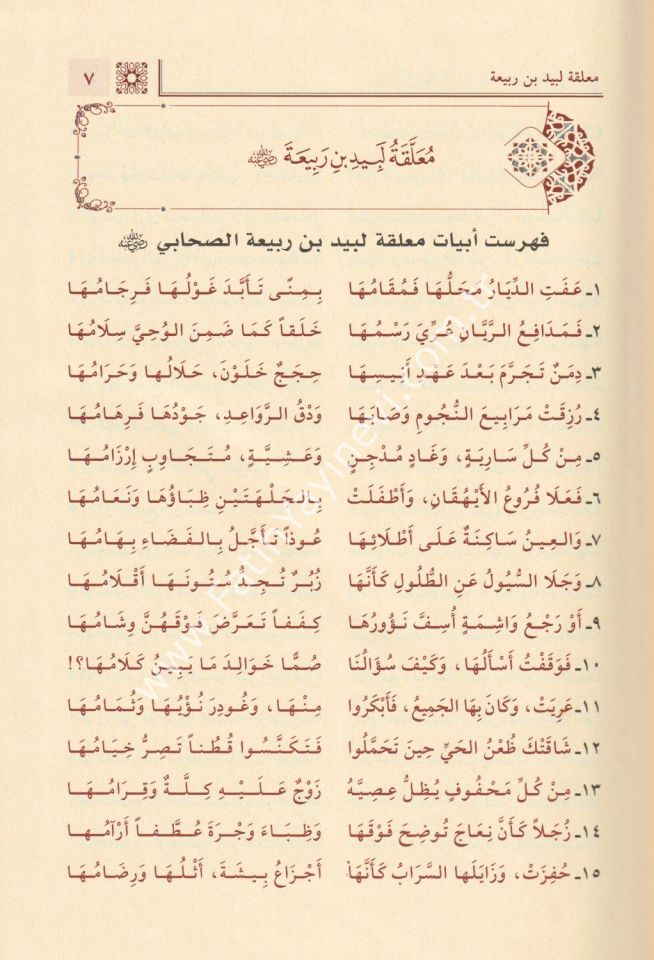 معلقة لبيد بن ربيعة
٧
مُعَلَّقَةُ لَبِيدِ بنِ رَبِيعَةَ رضي الله عنه
فهرست أبيات معلقة لبيد بن ربيعة الصحابي رضي الله عنه
١ـ عَفَتِ الدِّيَارُ مَحَلُّهَا فَمُقَامُهَا بِمِنًى تَأَبَّدَ غَوْلُهَا فَرِجَامُهَا
٢ـ فَمَدَافِعُ الرَّيَّانِ عُرِّيَ رَسْمُهَا خَلَقاً كَمَا ضَمِنَ الوُحِيَّ سِلَامُهَا
٣ـ دِمَنٌ تَجَرَّمَ بَعْدَ عَهْدِ أَنِيسِهَا حِجَجٌ خَلَوْنَ، حَلَالُهَا وَحَرَامُهَا
٤ـ رُزِقَتْ مَرَابِيعَ النُّجُومِ وَصَابَهَا وَدْقُ الرَّوَاعِدِ، جَوْدُهَا فَرِهَامُهَا
٥ـ مِنْ كُلِّ سَارِيَةٍ، وَغَادٍ مُدْجِنٍ وَعَشِيَّةٍ، مُتَجَاوِبٍ إِرْزَامُهَا
٦ـ فَعَلَا فُرُوعُ الأَيْهُقَانِ، وَأَطْفَلَتْ بِالجَلْهَتَيْنِ ظِبَاؤُهَا وَنَعَامُهَا
٧ـ وَالعِينُ سَاكِنَةٌ عَلَى أَطْلَائِهَا عُوذاً تَأَجَّلُ بِالفَضَاءِ بِهَامُهَا
٨ـ وَجَلَا السُّيُولُ عَنِ الطُّلُولِ كَأَنَّهَا زُبُرٌ تُجِدُّ مُتُونَهَا أَقْلَامُهَا
٩ـ أَوْ رَجْعُ وَاشِمَةٍ أُسِفَّ نَؤُورُهَا كِفَفاً تَعَرَّضَ فَوْقَهُنَّ وِشَامُهَا
١٠ـ فَوَقَفْتُ أَسْأَلُهَا، وَكَيْفَ سُؤَالُنَا صُمًّا خَوَالِدَ مَا يَبِينُ كَلَامُهَا؟!
١١ـ عَرِيَتْ، وَكَانَ بِهَا الجَمِيعُ، فَأَبْكَرُوا مِنْهَا، وَغُودِرَ نُؤْيُهَا وَثُمَامُهَا
١٢ـ شَاقَتْكَ ظُعْنُ الحَيِّ حِينَ تَحَمَّلُوا فَتَكَنَّسُوا قُطُناً تَصِرُّ خِيَامُهَا
١٣ـ مِنْ كُلِّ مَحْفُوفٍ يُظِلُّ عِصِيَّهُ زَوْجٌ عَلَيْهِ كِلَّةٌ وَقِرَامُهَا
١٤ـ زُجَلاً كَأَنَّ نِعَاجَ تُوضِحَ فَوْقَهَا وَظِبَاءَ وَجْرَةَ عُطَّفاً أَرْآمُهَا
١٥ـ حُفِزَتْ، وَزَايَلَهَا السَّرَابُ كَأَنَّهَا أَجْزَاعُ بِيشَةَ، أَثْلُهَا وَرِضَامُهَا
www.Fatihyayinevi.com.tr